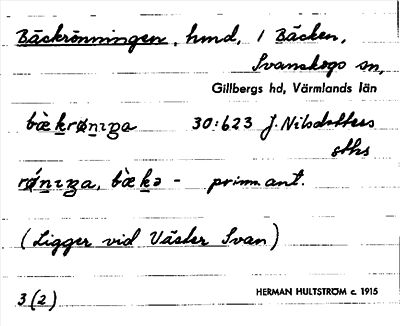 Bäckrönningen, hmd, 1 Bäcken,
Svanskogs sn,
Gillbergs hd, Värmlands län
bæ̀krǿnıŋa 30:623 J. Nilsdotters
sths
rǿnıŋa, bæ̀kə - prim. ant.
(Ligger vid Väster Svan)
3(2) HERMAN HULTSTRÖM c. 1915